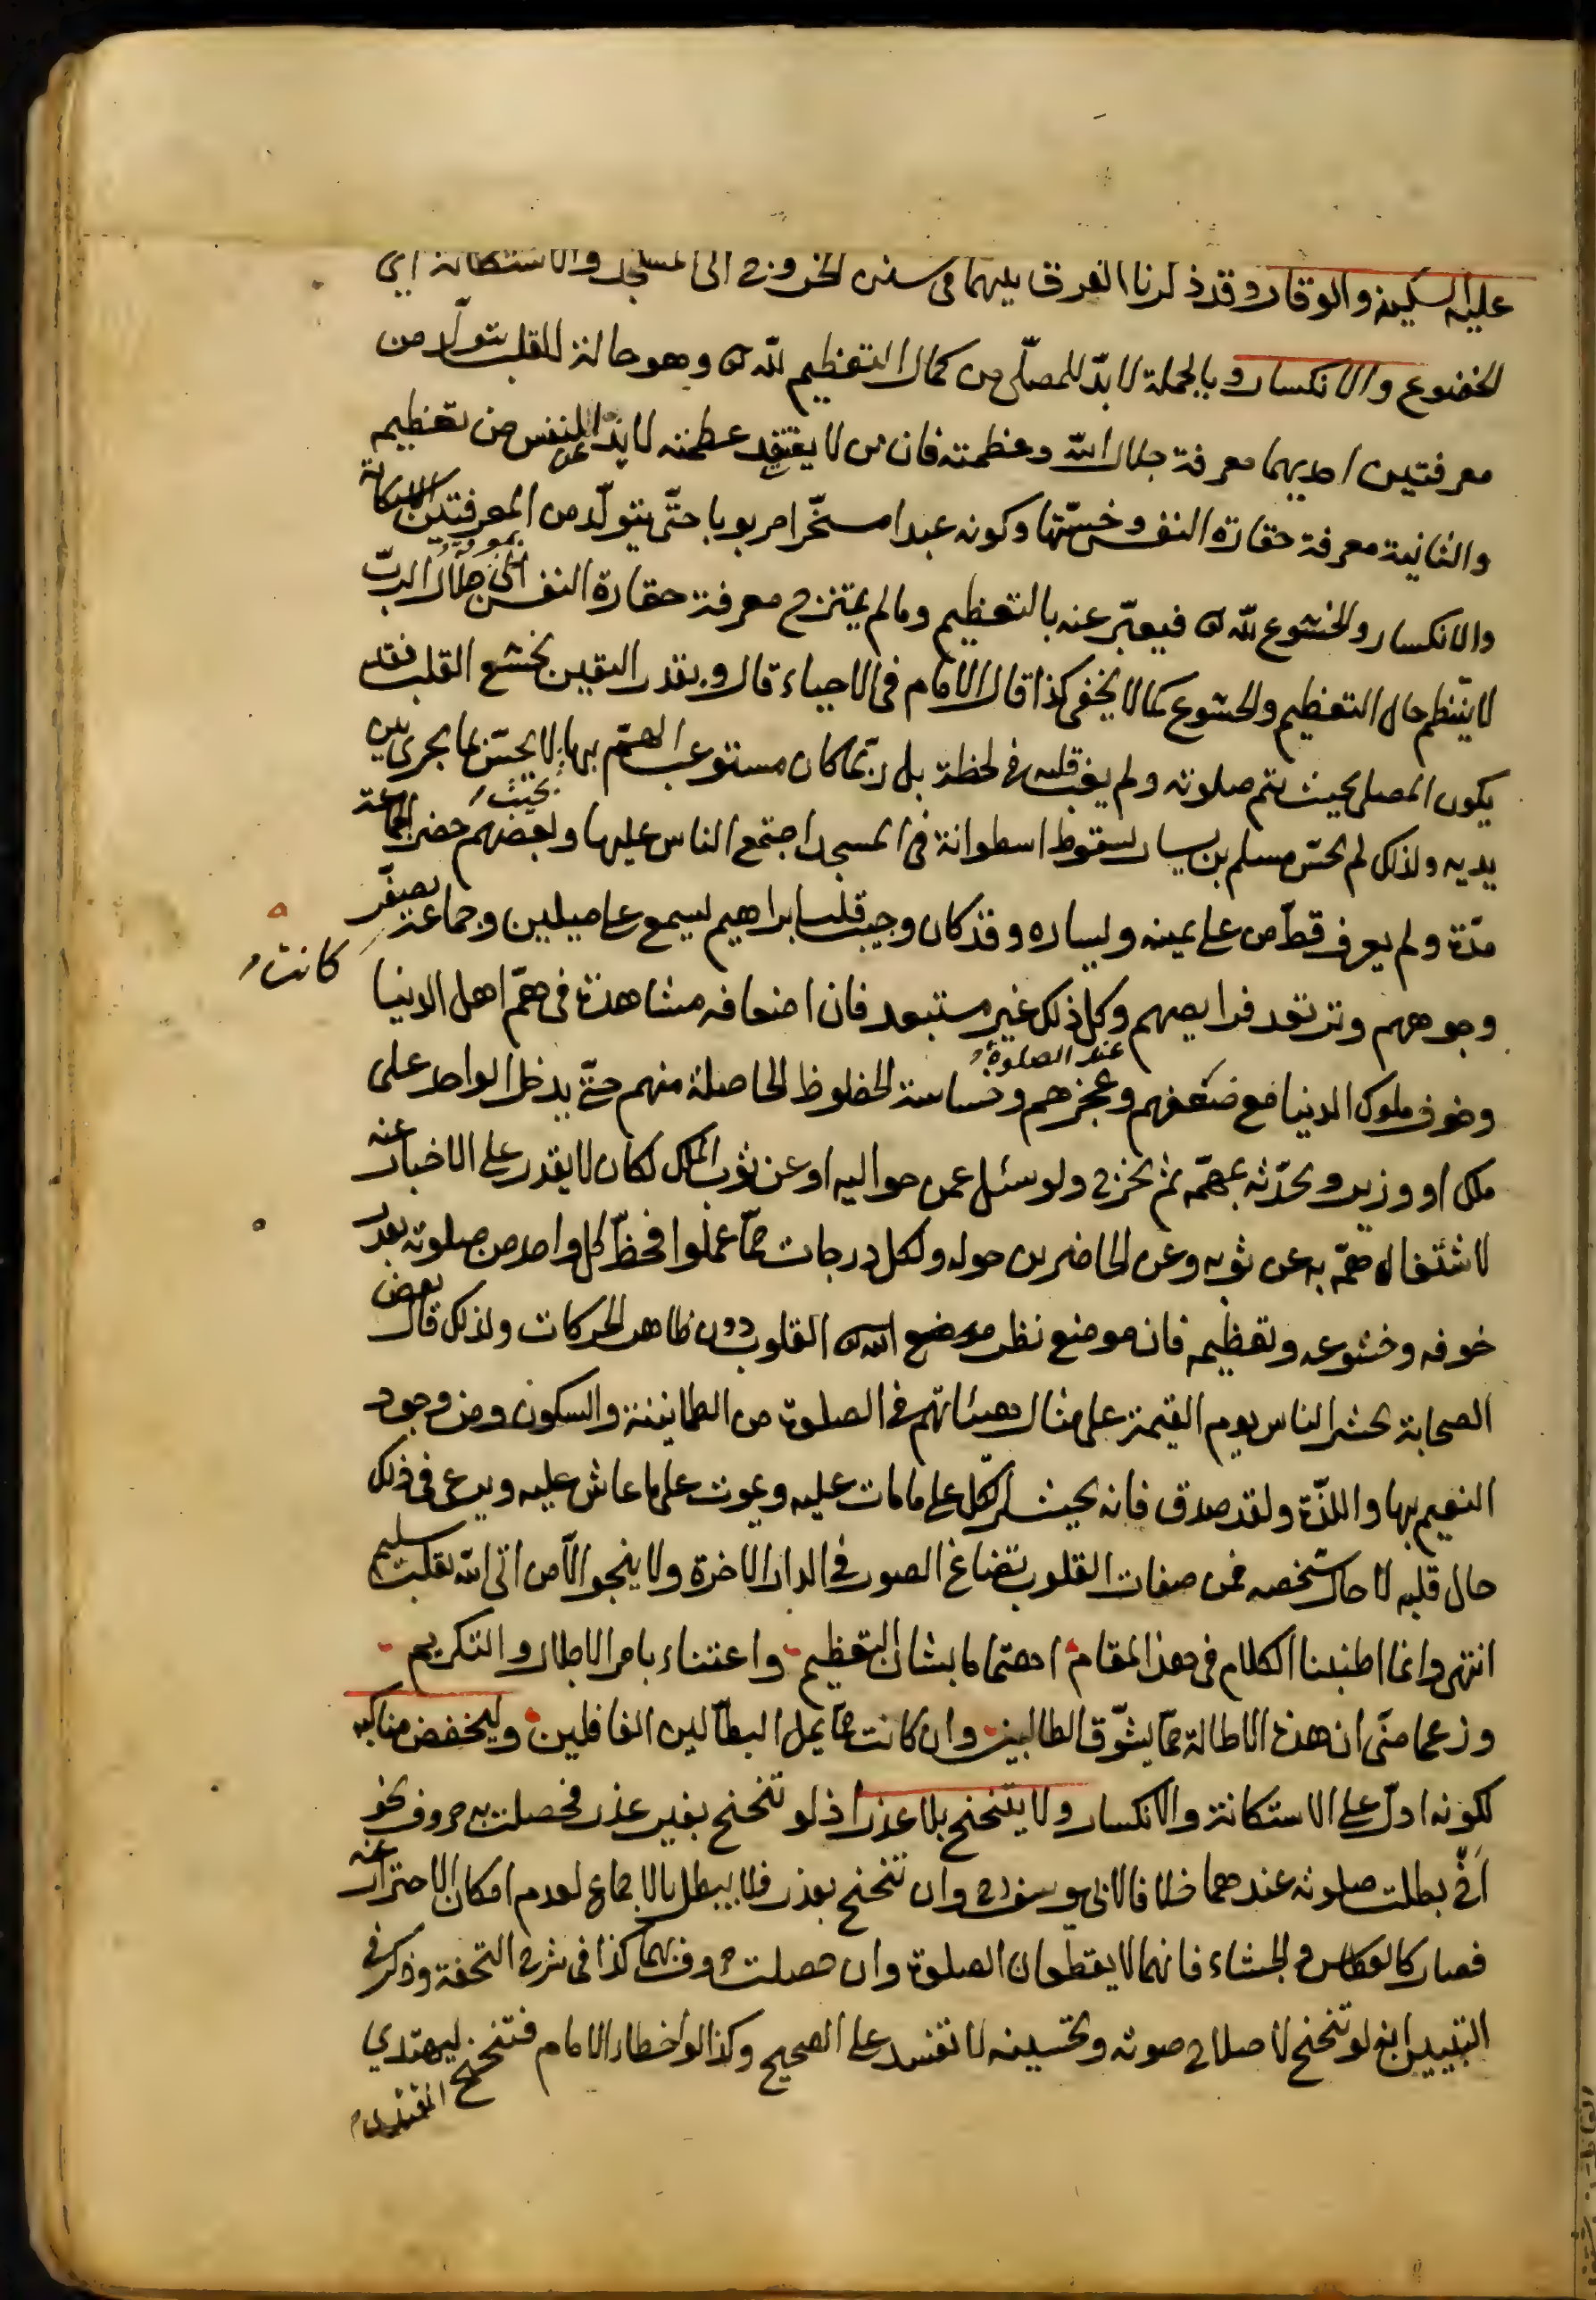 عليه السكينة والوقار وقد ذكرنا الفرق بينهما فى سنن الخروج الى المسجد والاستكانة اى
الخضوع والانكسار وبالجملة لا بدّ للمصلّى من كمال التعظيم لله تع وهو حالة للقلب يتولّد من
معرفتين احديهما معرفة جلال الله وعظمته فان من لا يعتقد عظمته لا يذعن النفس من تعظيمه
والثانية معرفة حقارة النفس وخسّتها وكونه عبدا مسخّرا مربوبا حتّى يتولّد من المعرفتين الاستكانة
والانكسار والخشوع لله تع فيعبّر عنه بالتعظيم وما لم يمتزج معرفة حقارة النفس بمعرفة جلال الربّ
لا ينتظم حال التعظيم والخشوع كما لا يخفى كذا قال الامام فى الاحياء قال وبقدر اليقين يخشع القلب فقد
يكون المصلى بحيث يتم صلوته ولم يغب قلبه فى لحظة بل ربّما كان مستوعب الهمّ بها بحيث لا يحسّ بما يجرى بين
يديه ولذلك لم يحسّ مسلم بن يسار لسقوط اسطوانة فى المسجد اجتمع الناس عليها وبعضهم حضر الجماعة
مدّة ولم يعرف قطّ من على يمينه ويساره وقد كان وجيب قلب ابراهيم ليسمع على ميلين وجماعة كانت يصفّر
وجوههم وترتعد فرايصهم عند الصلوة وكل ذلك غير مستبعد فان اضعافه مشاهدة فى همّ اهل الدنيا
وخوف ملوك الدنيا مع ضعفهم وعجزهم وخساسة الحظوظ الحاصلة منهم حتى يدخل الواحد على
ملك او وزير ويحدّثه بمهمّه ثم يخرج ولو سئل عمن حواليه او عن ثوب الملك لكان لا يقدر على الاخبار عنه
لاشتغال همّه به عن ثوبه وعن الحاضرين حوله ولكل درجات ممّا عملوا فحظّ كل واحد من صلوته بقدر
خوفه وخشوعه وتعظيمه فان موضع نظر الله تع القلوب دون ظاهر الحركات ولذلك قال بعض
الصحابة يحشر الناس يوم القيمة على مثال هيئاتهم فى الصلوة من الطمانينة والسكون ومن وجود
النعيم بها واللذّة ولقد صدق فانه يحشر كلّ على ما مات عليه ويموت على ما عاش عليه ويرعى فى ذلك
حال قلبه لا حال شخصه فمن صفات القلوب تصاغ الصور فى الدار الاخرة ولا ينجو الّا من اتى الله بقلب سليم
انتهى وانما اطنبنا الكلام فى هذا المقام اهتماما بشان التعظيم واعتناء بامر الاجلال والتكريم
وزعما منّى ان هذه الاطالة ممّا يشوّق الطالبين وان كانت ممّا يمل البطّالين الغافلين وليخفض مناكبه
لكونه ادلّ على الاستكانة والانكسار ولا يتنحنح بلا عذر اذ لو تنحنح بغير عذر فحصلت به حروف نحو
اَخْ بطلت صلوته عندهما خلافا لابى يوسف رح وان تنحنح بعذر فلا يبطل بالاجماع لعدم امكان الاحتراز عنه
فصار كالعطاس والجشاء فانهما لا يقطعان الصلوة وان حصلت حروف بهما كذا فى شرح التحفة وذكر فى
التبيين انه لو تنحنح لاصلاح صوته وتحسينه لا تفسد على الصحيح وكذا لو اخطاء الامام فتنحنح ليهتدى
المقتدى